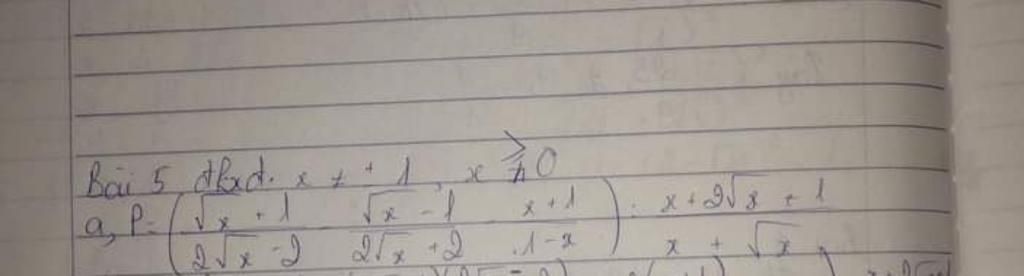 Bài 5 đkxđ. x ≠ ± 1, x ≥ 0
a, P = ( (√x + 1)/(2√x - 2) - (√x - 1)/(2√x + 2) - (x + 1)/(1 - x) ) : (x + 2√x + 1)/(x + √x)